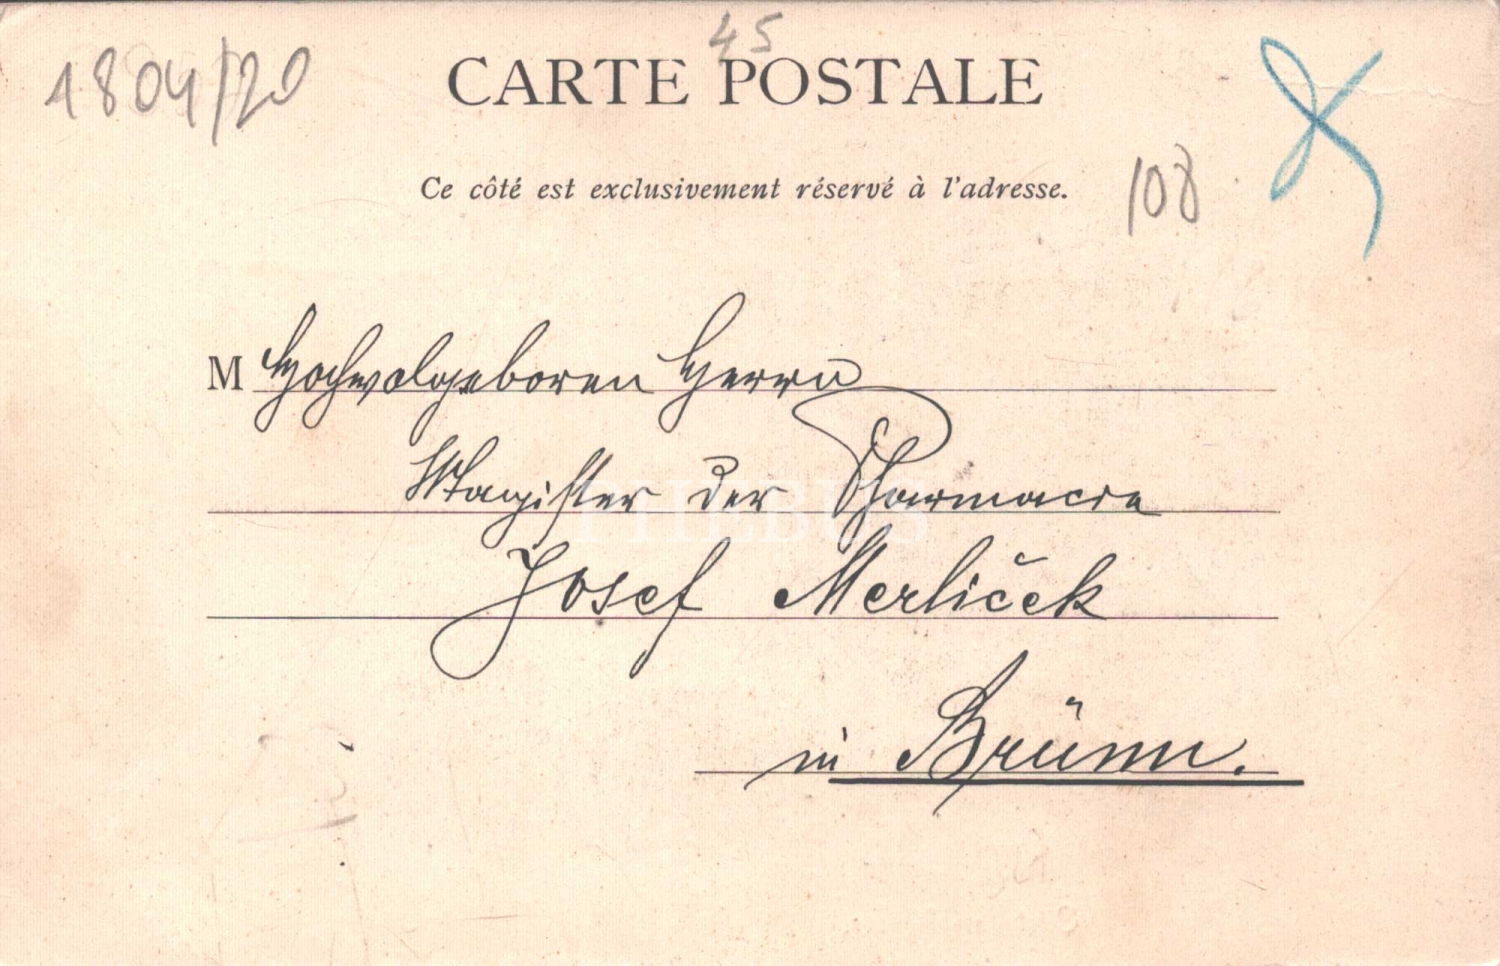 45
1804/20
CARTE POSTALE
Ce côté est exclusivement réservé à l'adresse.
108
M Hochwolgeboren Herrn
Magister der Pharmacie
Josef Merliček
in Brünn.
THEBUS